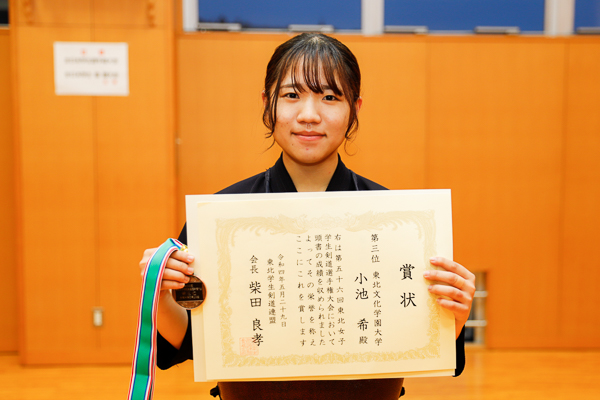 賞状
第三位 東北文化学園大学
小池 希 殿
右は第五十六回東北女子
学生剣道選手権大会において
頭書の成績を収められました
よってその栄誉を称え
ここにこれを賞します
令和四年五月二十九日
東北学生剣道連盟
会長 柴田 良孝